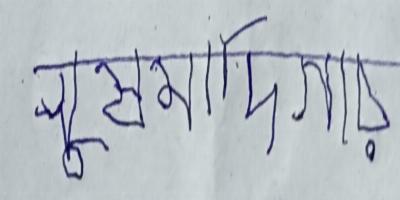 সুষমা দিগার